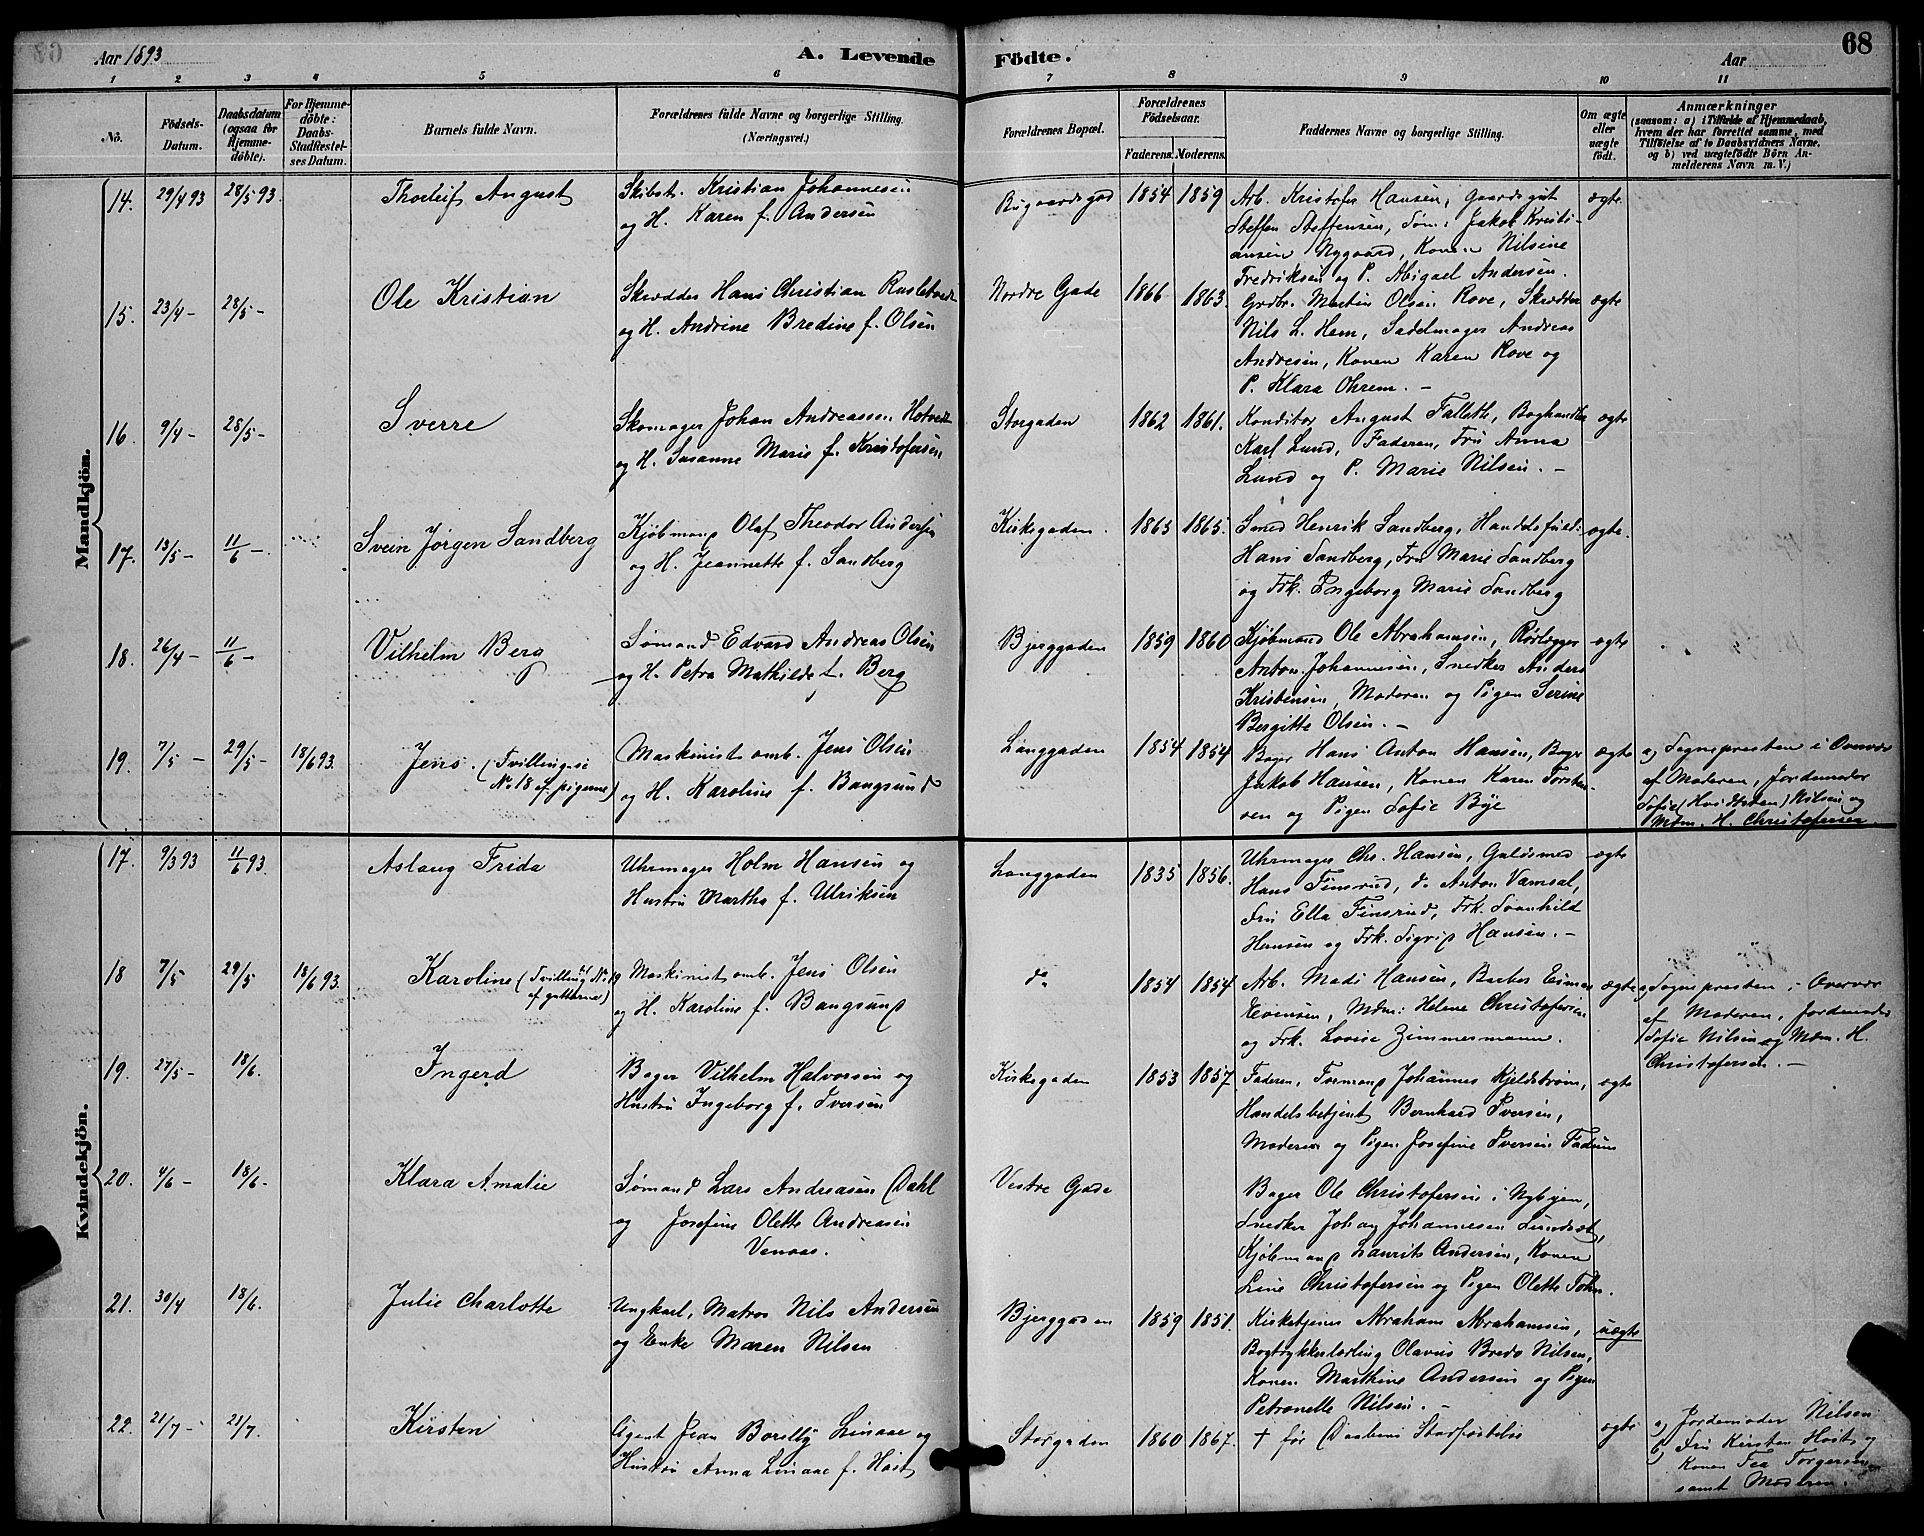 Aar 1893
A. Levende Födte.
Aar
68
1 2 3 4 5 6 7 8 9 10 11
No.
Födsels-Datum.
Daabsdatum (ogsaa for Hjemmedöbte).
For Hjemmedöbte: Daabs-Stadfestelses Datum.
Barnets fulde Navn.
Forældrenes fulde Navne og borgerlige Stilling. (Næringsvei.)
Forældrenes Bopæl.
Forældrenes Födselsaar.
Faderens. Moderens.
Faddernes Navne og borgerlige Stilling.
Om ægte eller uægte födt.
Anmærkninger
(saasom: a) i Tilfælde af Hjemmedaab, hvem der har forrettet samme, med Tilföielse af to Daabsvidners Navne, og b) ved uægtefödte Börn Anmelderens Navn m. V.)
Mandkjön.
14. 29/4 93 28/5 93. Thorleif August
Skibst. Kristian Johannesen
og H. Karen f. Andersen
Bugaardsgad 1854 1859
Arb. Kristofer Hansen, Gaardsgut
Steffen Steffensen, Søm: Jakob Kristi-
ansen Nygaard, Konen Nilsine
Fredriksen og P. Abigael Andersen.
ægte
15. 23/4 - 28/5 - Ole Kristian
Skrædder Hans Christian Rusletvedt
og H. Andrine Bredine f. Olsen
Nordre Gade 1866 1863.
Grdbr. Martin Olsen Rove, Skrædder
Nils L. Hem, Sadelmager Andreas
Andresen, Konen Karen Rove og
P. Klara Ohrem. -
ægte
16. 9/4 - 28/5 - Sverre
Skomager Johan Andreassen Hotvedt
og H. Susanne Marie f. Kristofersen
Storgaden 1862 1861.
Konditor August Falleth, Boghandler
Karl Lund, Faderen, Fru Anna
Lund og P. Marie Nilsen. -
ægte
17. 13/5 - 11/6 - Svein Jørgen Sandberg
Kjøbmand Olaf Theodor Andersen
og H. Jeannette f. Sandberg
Kirkegaden. 1865 1865.
Smed Henrik Sandberg, Handelsfuldm.
Hans Sandberg, Fru Marie Sandberg
og Frk. Ingeborg Marie Sandberg
ægte.
18. 26/4 - 11/6 - Vilhelm Berg
Sømand Edvard Andreas Olsen
og H. Petra Mathilde f. Berg
Bjerggaden 1859 1860
Kjøbmand Ole Abrahamsen, Rørlægger
Anton Johannesen, Snedker Anders
Kristensen, Moderen og Pigen Serine
Bergitte Olsen. -
ægte
19. 7/5 - 29/5 - 18/6 93. Jens. (Tvilling-se
No. 18 af pigerne)
Maskinist omb. Jens Olsen
og H. Karoline f. Bangsund
Langgaden 1854 1854
Bager Hans Anton Hansen, Bager
Jakob Hansen, Konen Karen Torsten-
sen og Pigen Sofie Bye
ægte
a) Sognepresten i Overvær
af Moderen, Jordemoder
Sofie (Hvidsten) Nilsen og
Mdm. H. Christofersen.
Kvindekjön.
17. 9/3 93 11/6 93. Aslaug Frida
Uhrmager Holm Hansen og
Hustru Martha f. Ulriksen
Langgaden 1835 1856.
Uhrmager Chr. Hansen, Guldsmed
Hans Finsrud, do Anton Vamsal,
Fru Ella Finsrud, Frk. Svanhild
Hansen og Frk. Sigrid Hansen. -
ægte
18 7/5 29/5 18/6 93. Karoline (Tvilling til No. 19
af gutterne)
Maskinist omb. Jens Olsen
og H. Karoline f. Bangsund
do 1854 1854.
Arb. Mads Hansen, Barber Einar
Evensen, Mdm: Helene Christofersen
og Frk. Lovise Zimmermann.
ægte
a) Sognepresten i Overvær
af Moderen, Jordemoder
Sofie Nilsen og Mdm. H.
Christofersen. -
19. 27/5 - 18/6. Ingerd
Bager Vilhelm Halvorsen og
Hustru Ingeborg f. Iversen
Kirkegaden 1853 1857
Faderen, Formand Johannes Kjeldstrøm,
Handelsbetjent Bernhard Iversen,
Moderen og Pigen Josefine Iversen Fadum
ægte
20. 4/6 - 18/6 - Klara Amalie
Sømand Lars Andreasen Dahl
og Josefine Olette Andreasen
Venaas.
Vestre Gade
Bager Ole Christofersen i Nybyen,
Snedker Johan Johannesen Lundsæt,
Kjøbmand Laurits Andersen, Konen
Line Christofersen og Pigen Olette Tohn.
21. 30/4 18/6. Julie Charlotte
Ungkarl, Matros Nils Andersen
og Enke Maren Nilsen
Bjerggaden 1859 1851.
Kirketjener Abraham Abrahamsen,
Bogtrykkerlærling Olavus Bredo Nilsen,
Konen Marthine Andersen og Pigen
Petronelle Nilsen. -
uægte
22. 21/7 - 21/7. Kirsten
Agent Jean Borelly Linaae og
Hustru Anna Linaae f. Høst
Storgaden 1860 1867.
† før Daabens Stadfæstelse
ægte
a) Jordemoder Nilsen
b) Fru Kirsten Høst og
Konen Tea Torgersen
samt Moderen.